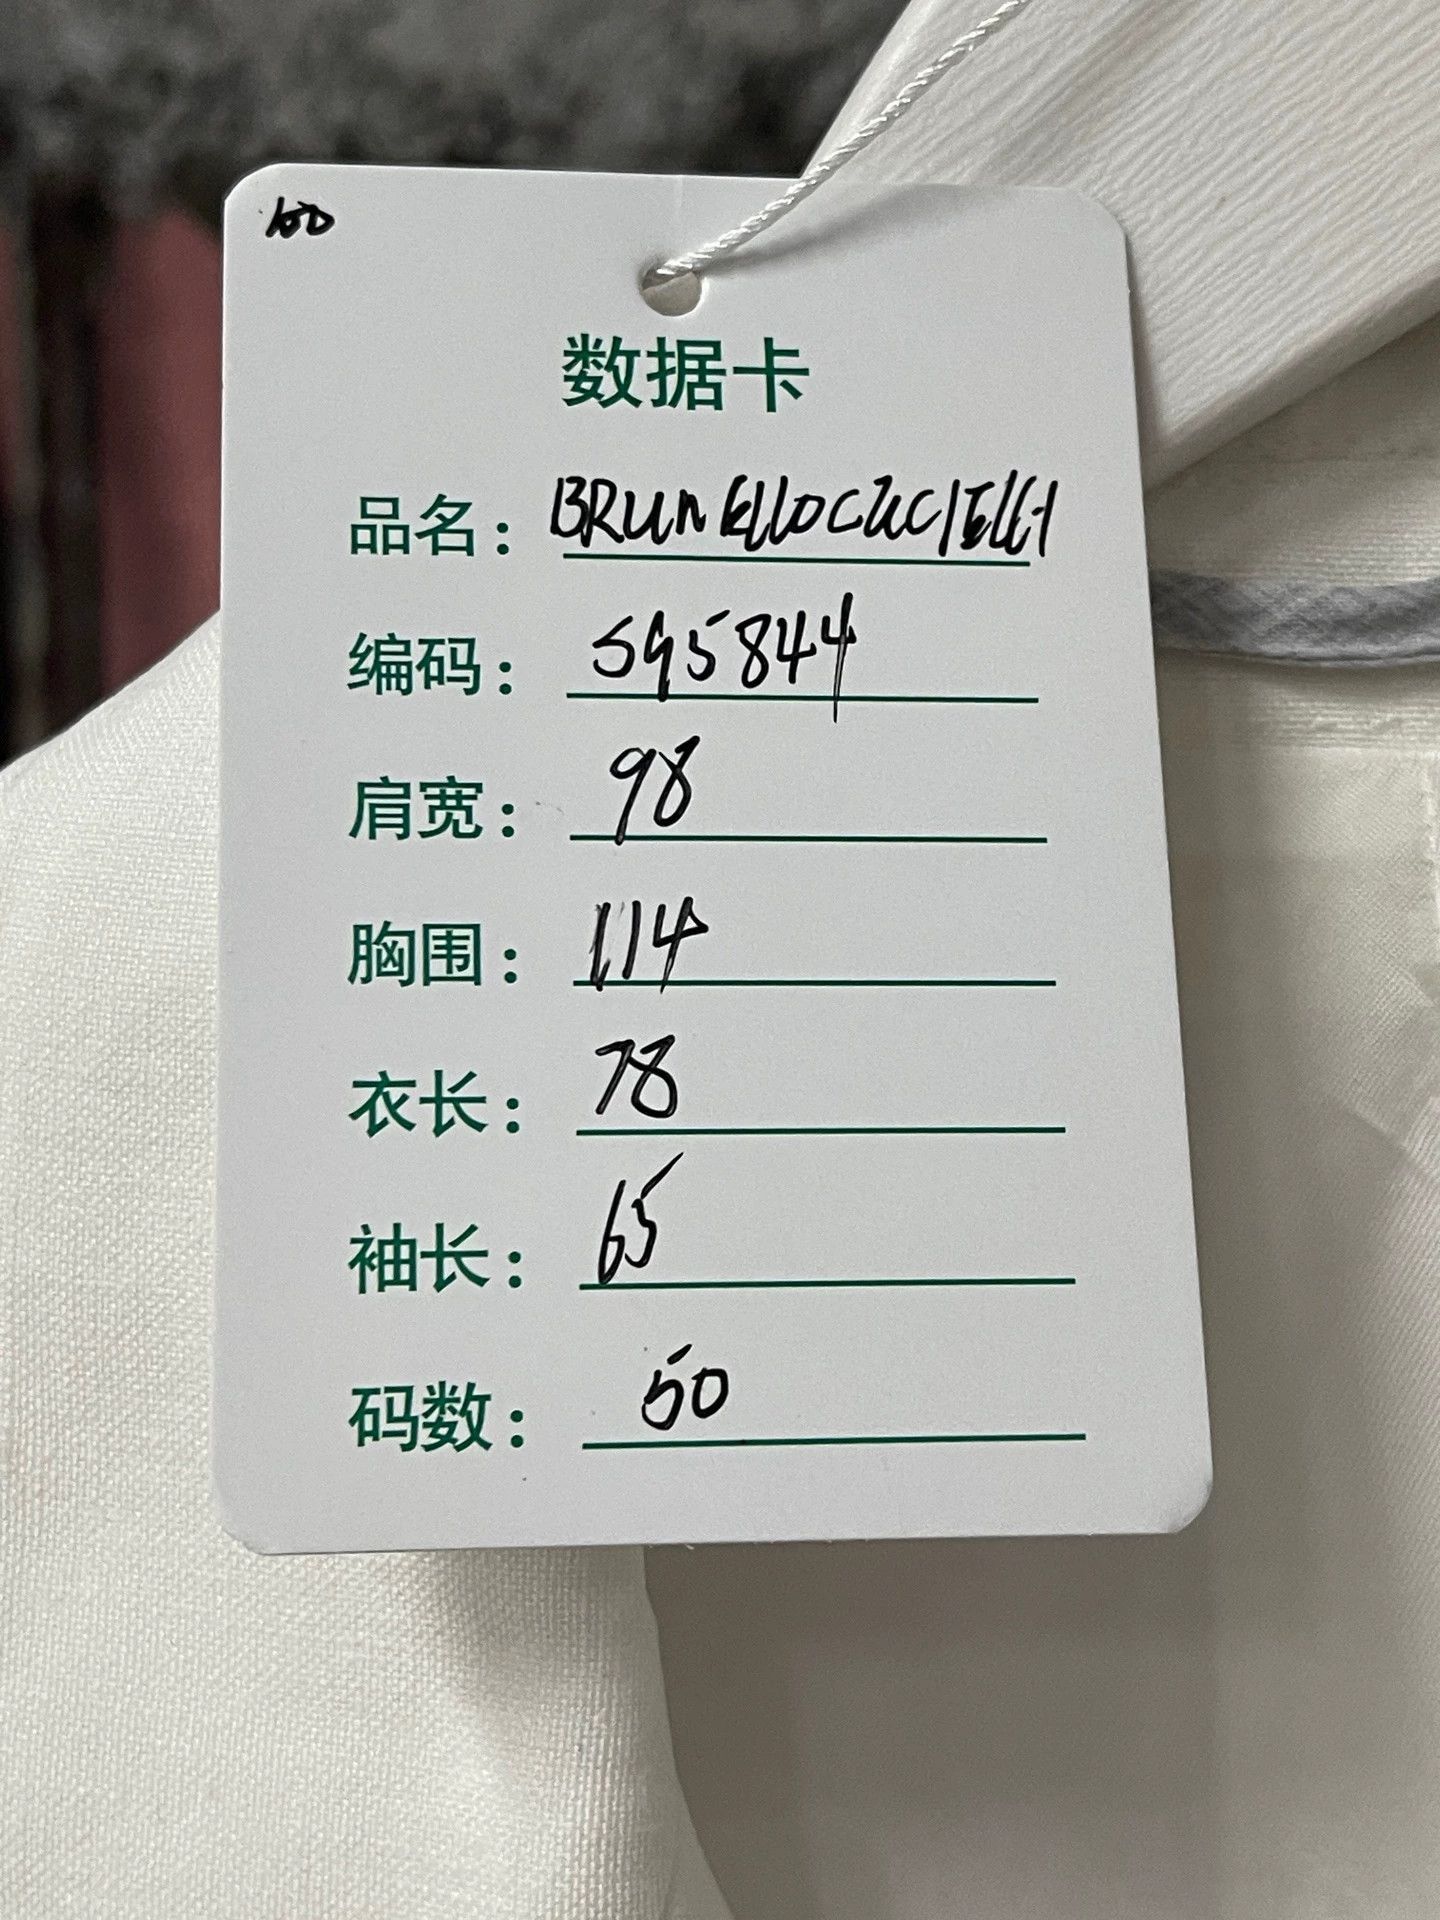 100
数据卡
品名：BRUNELLOCUCIELLI
编码：595844
肩宽：98
胸围：114
衣长：78
袖长：65
码数：50